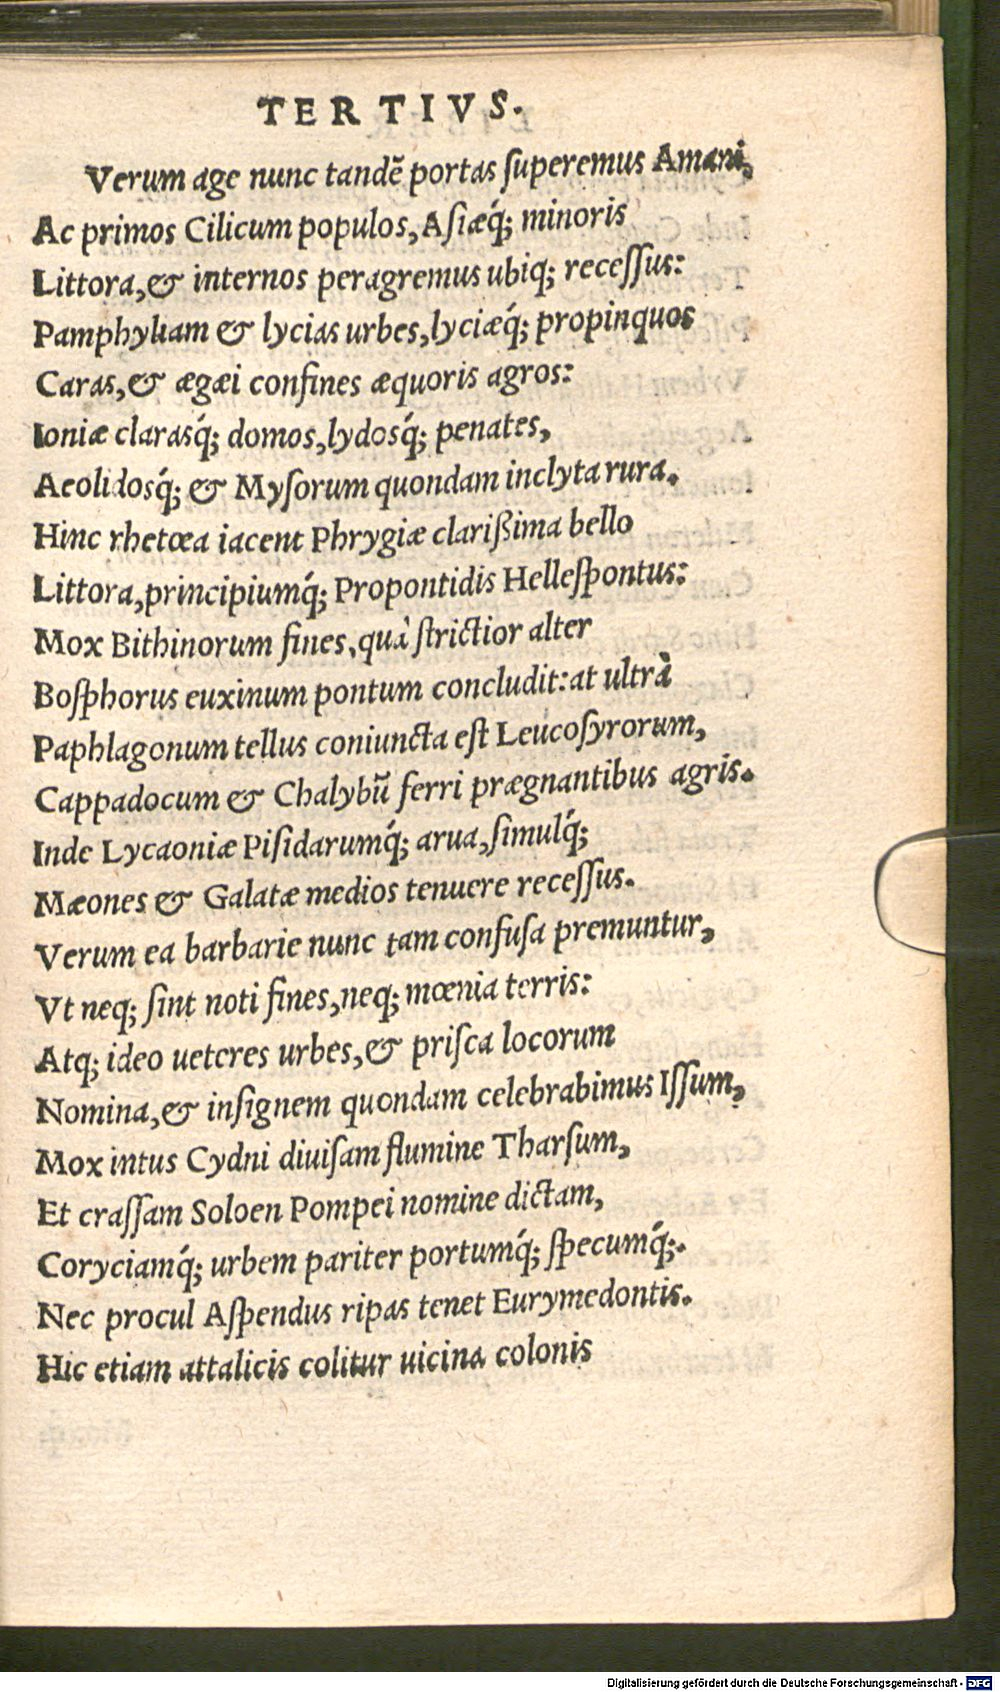 TERTIVS.
Verum age nunc tandẽ portas superemus Amani,
Ac primos Cilicum populos, Asiæq́; minoris
Littora, & internos peragremus ubiq; recessus:
Pamphyliam & lycias urbes, lyciæq́; propinquos
Caras, & ægæi confines æquoris agros:
Ioniæ clarasq́; domos, lydosq́; penates,
Aeolidosq́; & Mysorum quondam inclyta rura.
Hinc rhetœa iacent Phrygiæ clarißima bello
Littora, principiumq́; Propontidis Hellespontus:
Mox Bithinorum fines, quà strictior alter
Bosphorus euxinum pontum concludit: at ultrà
Paphlagonum tellus coniuncta est Leucosyrorum,
Cappadocum & Chalybũ ferri prægnantibus agris.
Inde Lycaoniæ Pisidarumq́; arua, simulq́;
Mæones & Galatæ medios tenuere recessus.
Verum ea barbarie nunc tam confusa premuntur,
Vt neq; sint noti fines, neq; mœnia terris:
Atq; ideo ueteres urbes, & prisca locorum
Nomina, & insignem quondam celebrabimus Issum,
Mox intus Cydni diuisam flumine Tharsum,
Et crassam Soloen Pompei nomine dictam,
Coryciamq́; urbem pariter portumq́; specumq́;.
Nec procul Aspendus ripas tenet Eurymedontis.
Hic etiam attalicis colitur uicina colonis
Digitalisierung gefördert durch die Deutsche Forschungsgemeinschaft - DFG